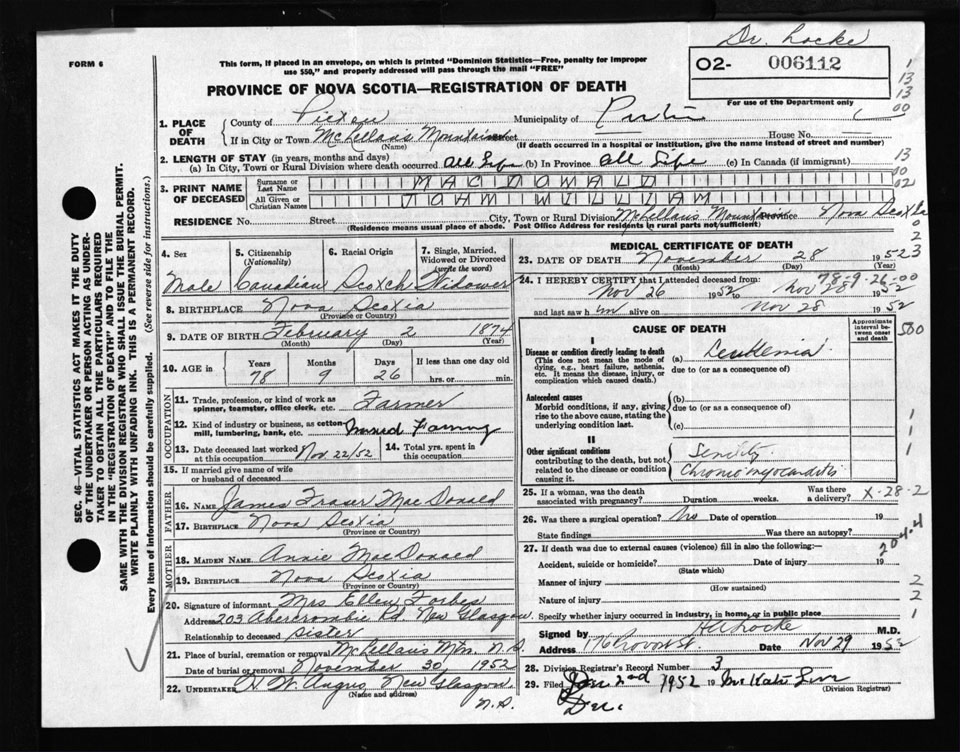 Dr. Locke
FORM 6
This form, if placed in an envelope, on which is printed "Dominion Statistics—Free, penalty for improper
use $50," and properly addressed will pass through the mail "FREE"
O2- 006112
PROVINCE OF NOVA SCOTIA—REGISTRATION OF DEATH
For use of the Department only
1. PLACE OF DEATH
County of Pictou Municipality of Pictou
If in City or Town McLellans Mountain Street House No.
(Name) (If death occurred in a hospital or institution, give the name instead of street and number)
2. LENGTH OF STAY (in years, months and days)
(a) In City, Town or Rural Division where death occurred All Life (b) In Province All Life (c) In Canada (if immigrant)
3. PRINT NAME OF DECEASED
Surname or Last Name MAC DONALD
All Given or Christian Names JOHN WILLIAM
RESIDENCE No. Street City, Town or Rural Division McLellans Mountain Nova Scotia
(Residence means usual place of abode. Post Office Address for residents in rural parts not sufficient)
4. Sex 5. Citizenship (Nationality) 6. Racial Origin 7. Single, Married, Widowed or Divorced (write the word)
Male Canadian Scotch Widower
8. BIRTHPLACE Nova Scotia
(Province or Country)
9. DATE OF BIRTH February 2 1874
(Month) (Day) (Year)
10. AGE in Years Months Days If less than one day old
78 9 26 hrs. or min.
OCCUPATION
11. Trade, profession, or kind of work as spinner, teamster, office clerk, etc. Farmer
12. Kind of industry or business, as cotton mill, lumbering, bank, etc. Farming
13. Date deceased last worked at this occupation Nov 22/52 14. Total yrs. spent in this occupation
15. If married give name of wife or husband of deceased
FATHER
16. NAME James Fraser MacDonald
17. BIRTHPLACE Nova Scotia
(Province or Country)
MOTHER
18. MAIDEN NAME Annie MacDonald
19. BIRTHPLACE Nova Scotia
(Province or Country)
20. Signature of informant Mrs Ellen Forbes
Address 203 Abercrombie Rd. New Glasgow
Relationship to deceased Sister
21. Place of burial, cremation or removal McLellans Mtn. N.S.
Date of burial or removal November 30, 1952
22. UNDERTAKER H. W. Angus, New Glasgow.
(Name and address) N.S.
MEDICAL CERTIFICATE OF DEATH
23. DATE OF DEATH November 28 1952
(Month) (Day) (Year)
24. I HEREBY CERTIFY that I attended deceased from: 78-9-26-00
Nov 26 1952 to Nov 28 1952
and last saw him alive on Nov 28 1952
CAUSE OF DEATH
Approximate interval between onset and death
I
Disease or condition directly leading to death (a) Leukemia
(This does not mean the mode of dying, e.g., heart failure, asthenia, etc. It means the disease, injury, or complication which caused death.)
due to (or as a consequence of)
Antecedent causes
Morbid conditions, if any, giving rise to the above cause, stating the underlying condition last.
(b)
due to (or as a consequence of)
(c)
II
Other significant conditions contributing to the death, but not related to the disease or condition causing it.
Senility
Chronic myocarditis
25. If a woman, was the death associated with pregnancy? Duration weeks. Was there a delivery? X-28-2
26. Was there a surgical operation? No Date of operation 19
State findings Was there an autopsy?
27. If death was due to external causes (violence) fill in also the following:—
Accident, suicide or homicide? Date of injury 19
(State which)
Manner of injury
(How sustained)
Nature of injury
Specify whether injury occurred in industry, in home, or in public place
Signed by HA Locke M.D.
Address 176 Provost St. Date Nov 29 1952
28. Division Registrar's Record Number 3
29. Filed 2nd 1952 19
(Division Registrar)
Dec.
SEC. 46—VITAL STATISTICS ACT MAKES IT THE DUTY
OF THE UNDERTAKER OR PERSON ACTING AS UNDER-
TAKER TO OBTAIN ALL THE PARTICULARS REQUIRED
IN THE "REGISTRATION OF DEATH" AND TO FILE THE
SAME WITH THE DIVISION REGISTRAR WHO SHALL ISSUE THE BURIAL PERMIT.
WRITE PLAINLY WITH UNFADING INK. THIS IS A PERMANENT RECORD.
Every item of Information should be carefully supplied. (See reverse side for instructions.)